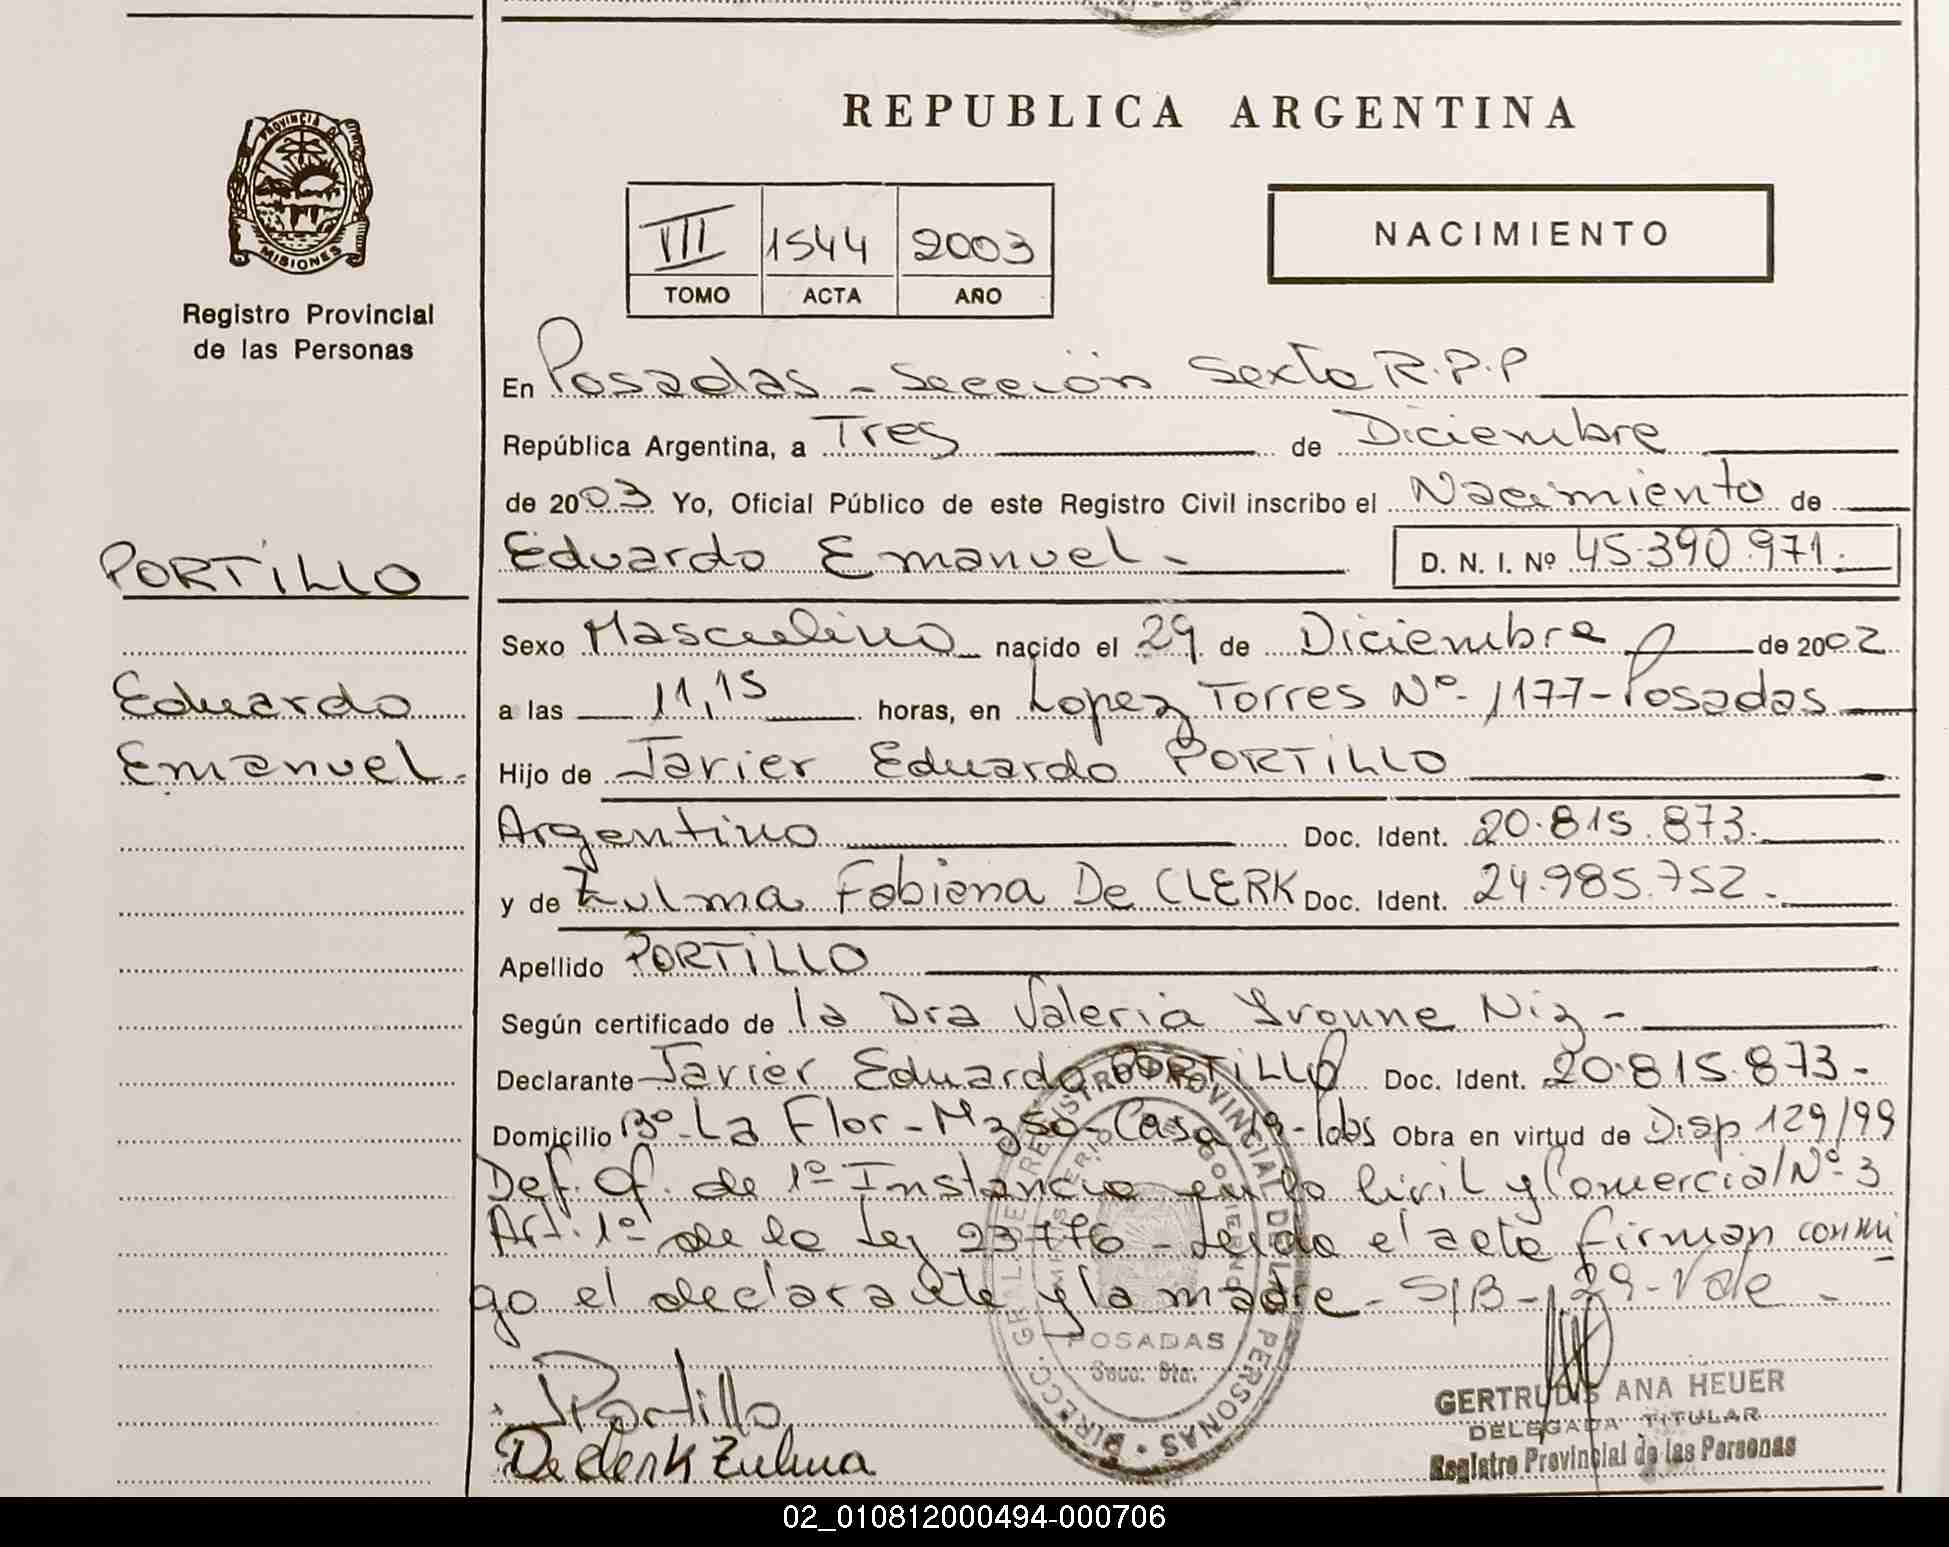 PROVINCIA DE
MISIONES
Registro Provincial
de las Personas
PORTILLO
Eduardo
Emanuel.
REPUBLICA ARGENTINA
VII 1544 2003
TOMO ACTA AÑO
NACIMIENTO
En Posadas - Sección Sexta R.P.P
República Argentina, a Tres de Diciembre
de 2003 Yo, Oficial Público de este Registro Civil inscribo el Nacimiento de
Eduardo Emanuel - D. N. I. Nº 45.390.971.
Sexo Masculino nacido el 29 de Diciembre de 2002
a las 11,15 horas, en Lopez Torres Nº 1177-Posadas
Hijo de Javier Eduardo PORTILLO
Argentino Doc. Ident. 20.815.873.
y de Zulma Fabiana De CLERK Doc. Ident. 24.985.752.
Apellido PORTILLO
Según certificado de la Dra Valeria Ivonne Niz -
Declarante Javier Eduardo PORTILLO Doc. Ident. 20.815.873-
Domicilio Bº La Flor - Mz 50 - Casa 19 - Pdas Obra en virtud de Disp 129/99
Def. Of. de 1º Instancia en lo Civil y Comercial Nº 3
Art. 1º de la Ley 23776 - Leida el acta firman conmi
go el declarante y la madre - S/B - 29 - Vale -
DIRECC. GRAL. DE REGISTRO PROVINCIAL DE LAS PERSONAS
POSADAS
Secc. 6ta.
Portillo
De clerk Zulma
GERTRUDIS ANA HEUER
DELEGADA TITULAR
Registro Provincial de las Personas
02_010812000494-000706